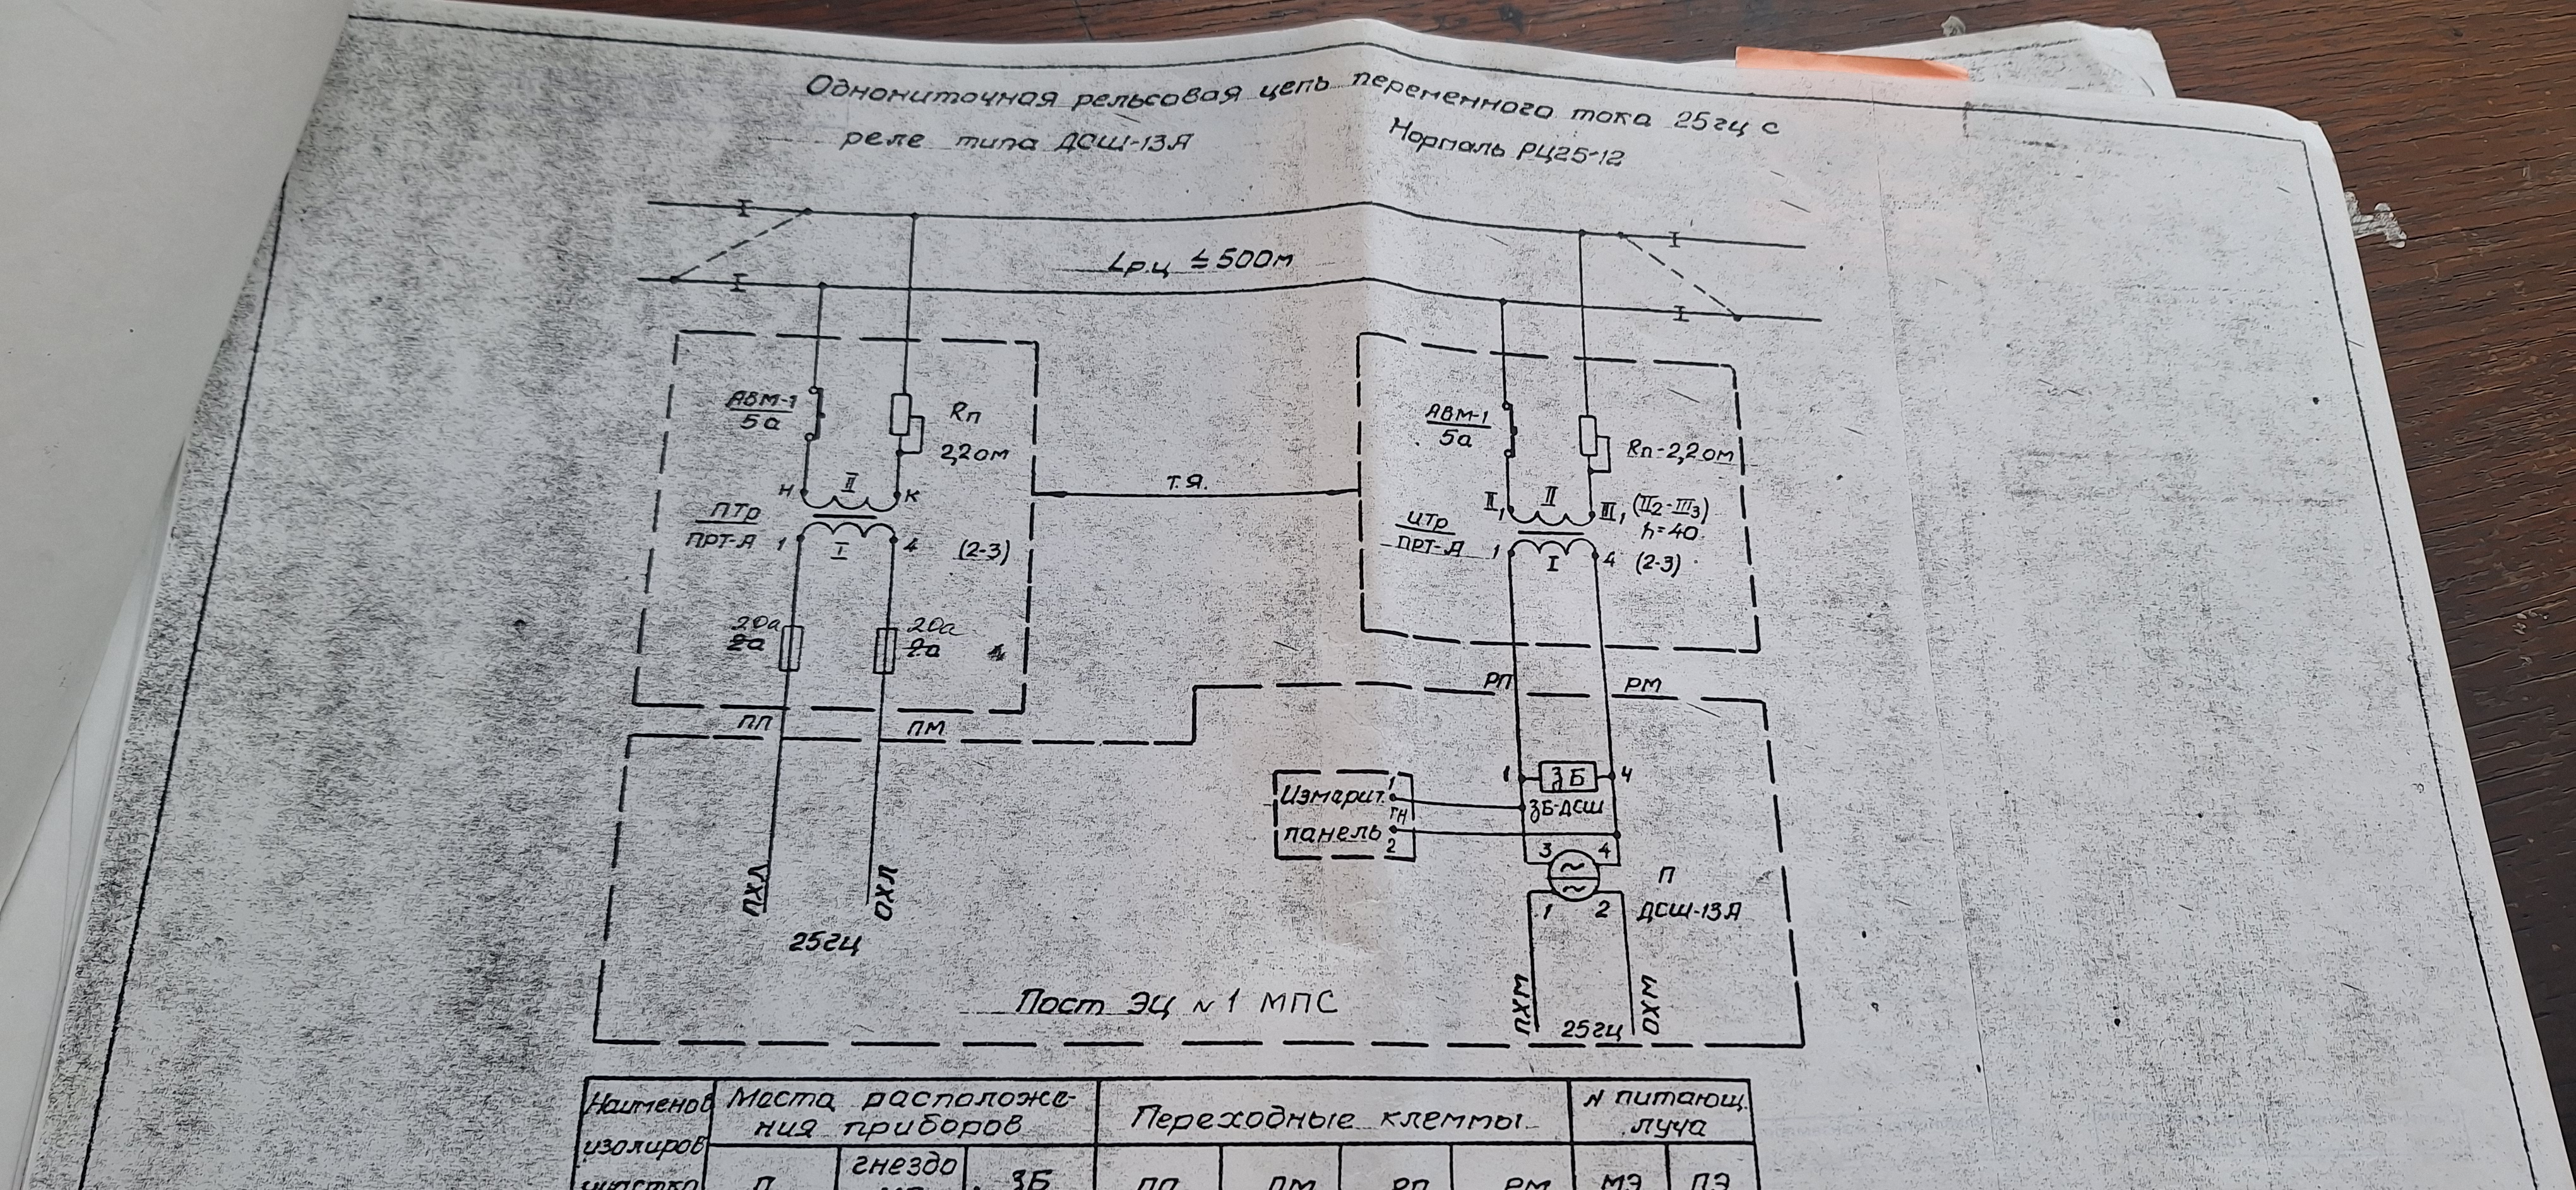 Однониточная рельсовая цепь переменного тока 25гц с
реле типа ДСШ-13А Нормаль РЦ25-12
Lр.ц ≤ 500м
АВМ-1
5а
Rп
2,2ом
Н II К
ПТр
ПРТ-А 1 I 4 (2-3)
20а
2а
20а
2а
ПП ПМ
ПХЛ ОХЛ
25гц
Т.Я.
АВМ-1
5а
Rп-2,2ом
II₁ II III₁ (II₂-III₃)
n=40
ИТр
ПРТ-А 1 I 4 (2-3)
РП РМ
1 ЗБ 4
ЗБ-ДСШ
Измерит. 1
ГН
панель 2
3 4
П
1 2 ДСШ-13А
ПХМ 25гц ОХМ
Пост ЭЦ N1 МПС
Наименов
изолиров
участко
Места расположе-
ния приборов
Переходные клеммы
N питающ.
луча
П гнездо ЗБ ПП ПМ РП РМ МЭ ПЭ